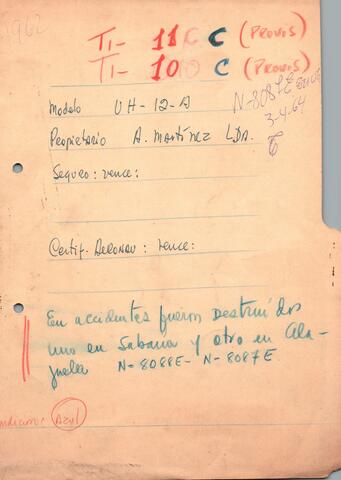 1962
TI- 11 C C (PROVIS)
TI- 10 C (PROVIS)
N-8087E
3-4-64
Modelo UH-12-A
Propietario A. Martínez LDA.
Seguro: vence:
Certif. Aeronav: vence:
En accidentes fueron destruidos
uno en Sabana y otro en Ala-
juela N-8088E- N-8087E
Azul